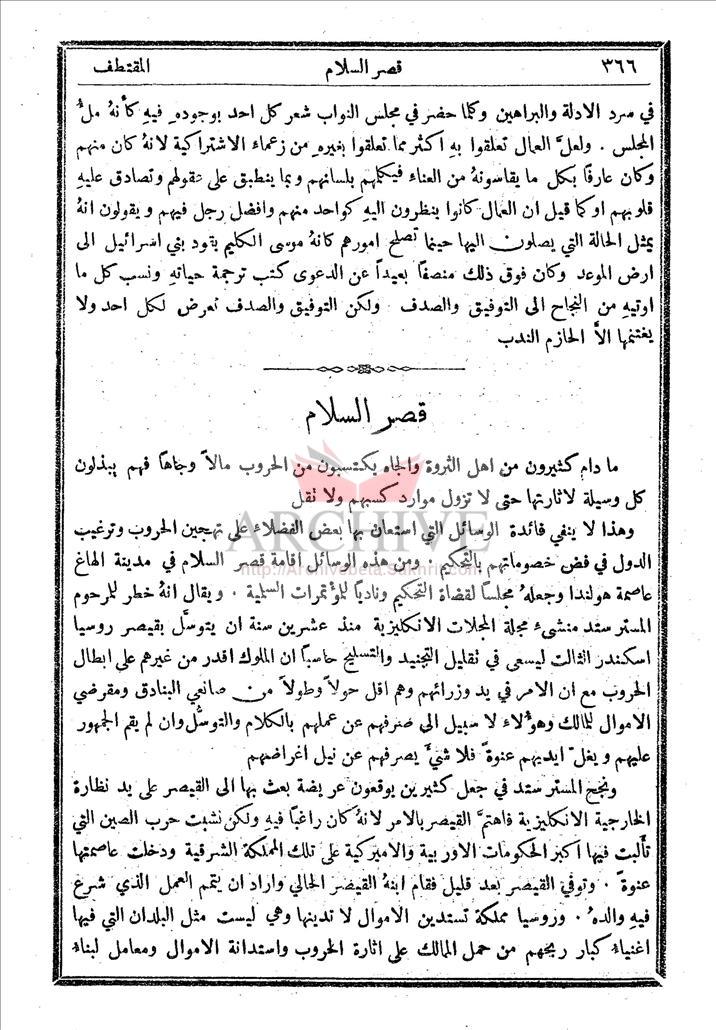 ٣٦٦ قصر السلام المقتطف
في سرد الادلة والبراهين وكلما حضر في مجلس النواب شعر كل احد بوجوده فيه كأنهُ ملءُ
المجلس . ولعلَّ العمال تعلقوا بهِ اكثر مما تعلقوا بغيرهِ من زعماء الاشتراكية لانهُ كان منهم
وكان عارفًا بكل ما يقاسونهُ من العناء فيكلمهم بلسانهم وبما ينطبق على عقولهم وتصادق عليهِ
قلوبهم او كما قيل ان العمال كانوا ينظرون اليهِ كواحد منهم وافضل رجل فيهم ويقولون انهُ
يمثل الحالة التي يصلون اليها حينما تصلح امورهم كانهُ موسى الكليم يقود بني اسرائيل الى
ارض الموعد وكان فوق ذلك منصفًا بعيداً عن الدعوى كتب ترجمة حياتهِ ونسب كل ما
اوتيهِ من النجاح الى التوفيق والصدف ولكن التوفيق والصدف تعرض لكل احد ولا
يغتنمها الاَّ الحازم الندب
قصر السلام
ما دام كثيرون من اهل الثروة والجاه يكتسبون من الحروب مالاً وجاهًا فهم يبذلون
كل وسيلة لاثارتها حتى لا تزول موارد كسبهم ولا تقل
وهذا لا ينفي فائدة الوسائل التي استعان بها بعض الفضلاء على تهجين الحروب وترغيب
الدول في فض خصوماتهم بالتحكيم . ومن هذه الوسائل اقامة قصر السلام في مدينة الهاغ
عاصمة هولندا وجعلهُ مجلسًا لقضاة التحكيم وناديًا للمؤتمرات السلمية . ويقال انهُ خطر للمرحوم
المستر ستد منشىء مجلة المجلات الانكليزية منذ عشرين سنة ان يتوسَّل بقيصر روسيا
اسكندر الثالث ليسعى في تقليل التجنيد والتسليح حاسبًا ان الملوك اقدر من غيرهم على ابطال
الحروب مع ان الامر في يد وزرائهم وهم اقل حولاً وطولاً من صانعي البنادق ومقرضي
الاموال للمالك وهؤلاء لا سبيل الى صرفهم عن عملهم بالكلام والتوسُّل وان لم يقم الجمهور
عليهم ويغل ايديهم عنوةً فلا شيءَ يصرفهم عن نيل اغراضهم
ونجح المستر ستد في جعل كثيرين يوقعون عريضة بعث بها الى القيصر على يد نظارة
الخارجية الانكليزية فاهتمَّ القيصر بالامر لانهُ كان راغبًا فيهِ ولكن نشبت حرب الصين التي
تألبت فيها اكبر الحكومات الاوربية والاميركية على تلك المملكة الشرقية ودخلت عاصمتها
عنوةً . وتوفي القيصر بعد قليل فقام ابنهُ القيصر الحالي واراد ان يتمم العمل الذي شرع
فيهِ والدهُ . وروسيا مملكة تستدين الاموال لا تدينها وهي ليست مثل البلدان التي فيها
اغنياء كبار ربحهم من حمل الممالك على اثارة الحروب واستدانة الاموال ومعامل لبناء
ARCHIVE
http://Archivebeta.Sakhrit.com